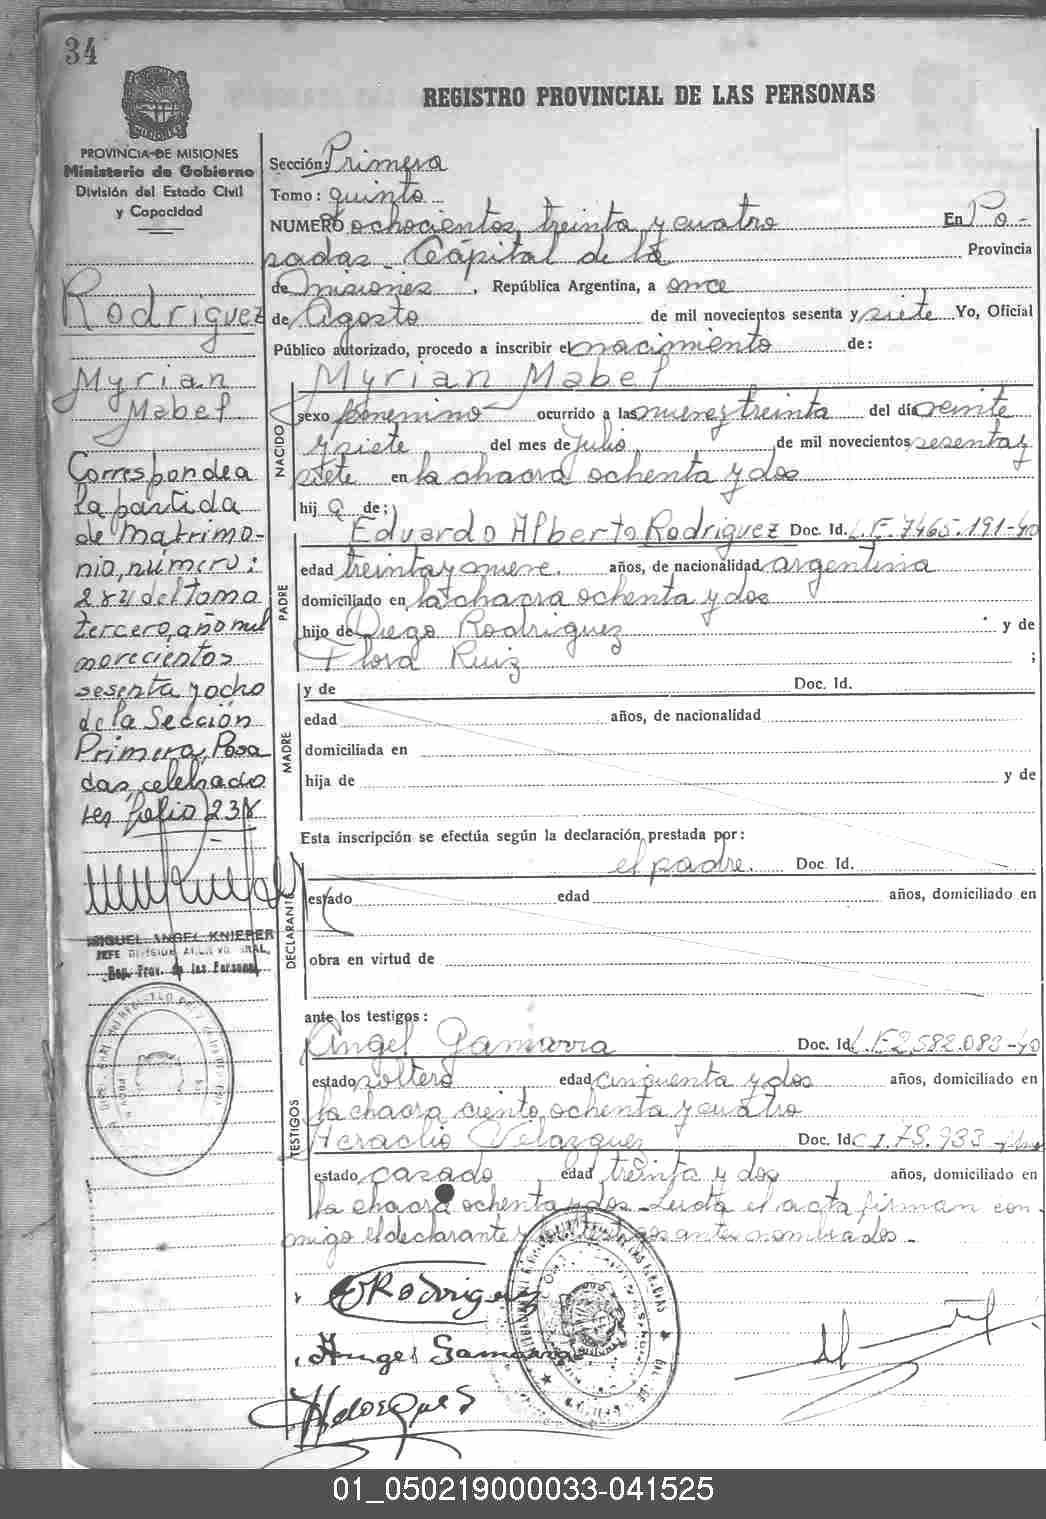 34
REGISTRO PROVINCIAL DE LAS PERSONAS
PROVINCIA DE MISIONES
Ministerio de Gobierno
División del Estado Civil
y Capacidad
Rodriguez
Myrian
Mabel
Corresponde a
la partida
de Matrimo-
nio, número:
284 del Tomo
tercero, año mil
novecientos
sesenta y ocho
de la Sección
Primera, Posa
das, celebrado
folio 238
MIGUEL ANGEL KNIEPER
JEFE DIVISION
Reg. Prov. de las Personas
Sección: Primera
Tomo: quinto
NUMERO ochocientos treinta y cuatro En Po-
sadas Capital de la Provincia
de Misiones, República Argentina, a once
de Agosto de mil novecientos sesenta y siete Yo, Oficial
Público autorizado, procedo a inscribir el nacimiento de:
NACIDO
Myrian Mabel
sexo femenino ocurrido a las nueve y treinta del día veinte
y siete del mes de Julio de mil novecientos sesenta y
siete en la chacra ochenta y dos
hija de:
PADRE
Eduardo Alberto Rodriguez Doc. Id. L.E. 7465.191-40
edad treinta y nueve años, de nacionalidad argentina
domiciliado en la chacra ochenta y dos
hijo de Diego Rodriguez y de
Flora Ruiz ;
MADRE
y de Doc. Id.
edad años, de nacionalidad
domiciliada en
hija de y de
Esta inscripción se efectúa según la declaración prestada por:
DECLARANTE
el padre. Doc. Id.
estado edad años, domiciliado en
obra en virtud de
ante los testigos:
TESTIGOS
Angel Gamarra Doc. Id. L.E. 2.582.083-40
estado soltero edad cincuenta y dos años, domiciliado en
la chacra ciento ochenta y cuatro
Heraclio Velazquez Doc. Id. C.I. 75.933
estado casado edad treinta y dos años, domiciliado en
la chacra ochenta y dos. Leida el acta firman con-
migo el declarante y los testigos antes nombrados.-
E Rodriguez
Angel Gamarra
01_050219000033-041525